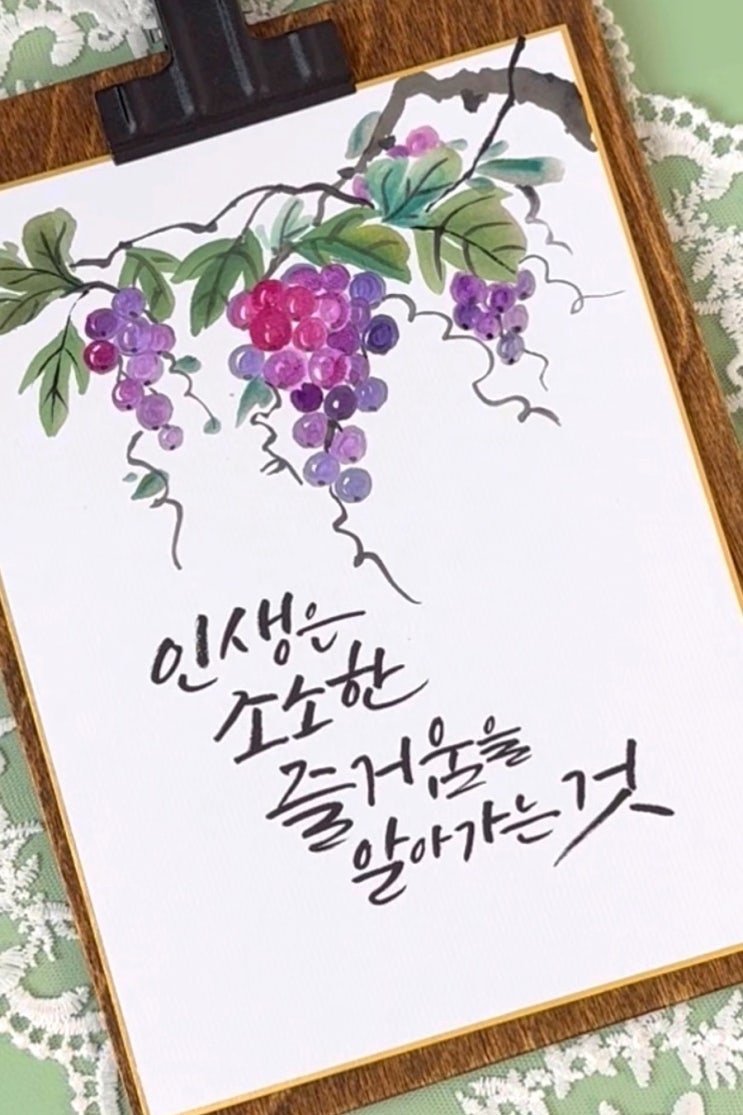 인생은
조소한
즐거움을
알아가는 것